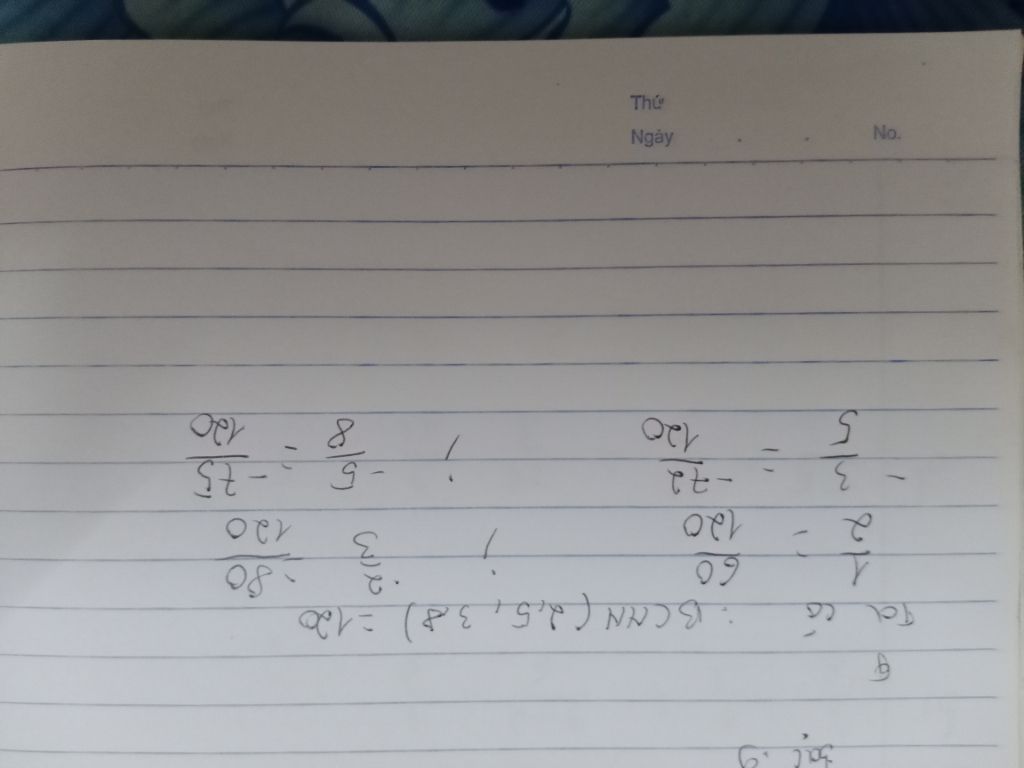 Thứ
Ngày
No.
bài: 9
a
Ta có : BCNN (2,5, 3,8) = 120
1/2 = 60/120 ; -2/3 = -80/120
-3/5 = -72/120 ; -5/8 = -75/120